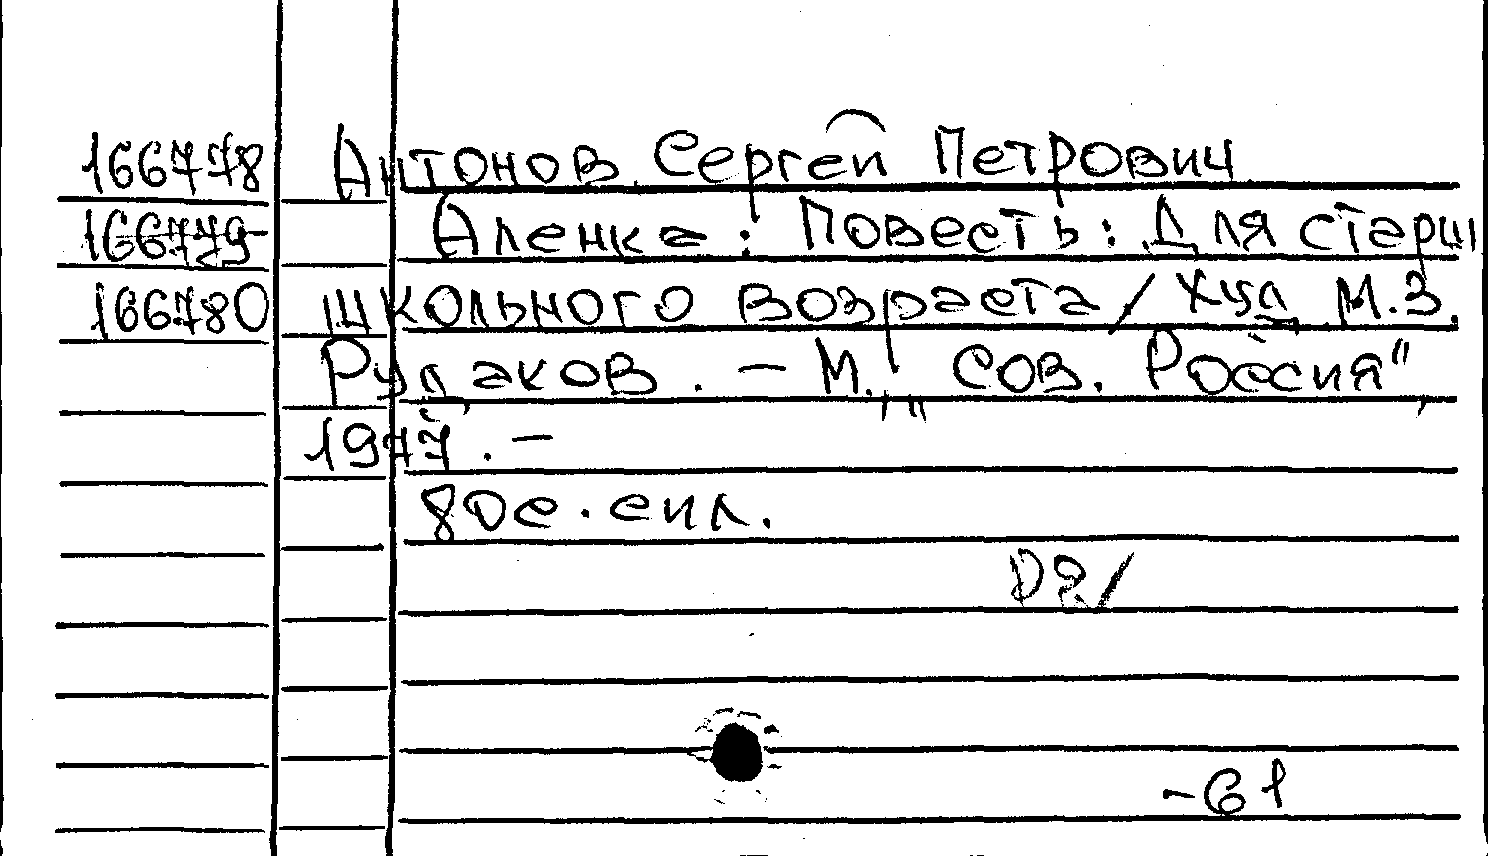 166778 Антонов Сергей Петрович
166779 Аленка: Повесть: Для старш
166780 школьного возраста / Худ М.З.
Рудаков. - М., "Сов. Россия",
1977. -
80с. сил.
D2/
-61